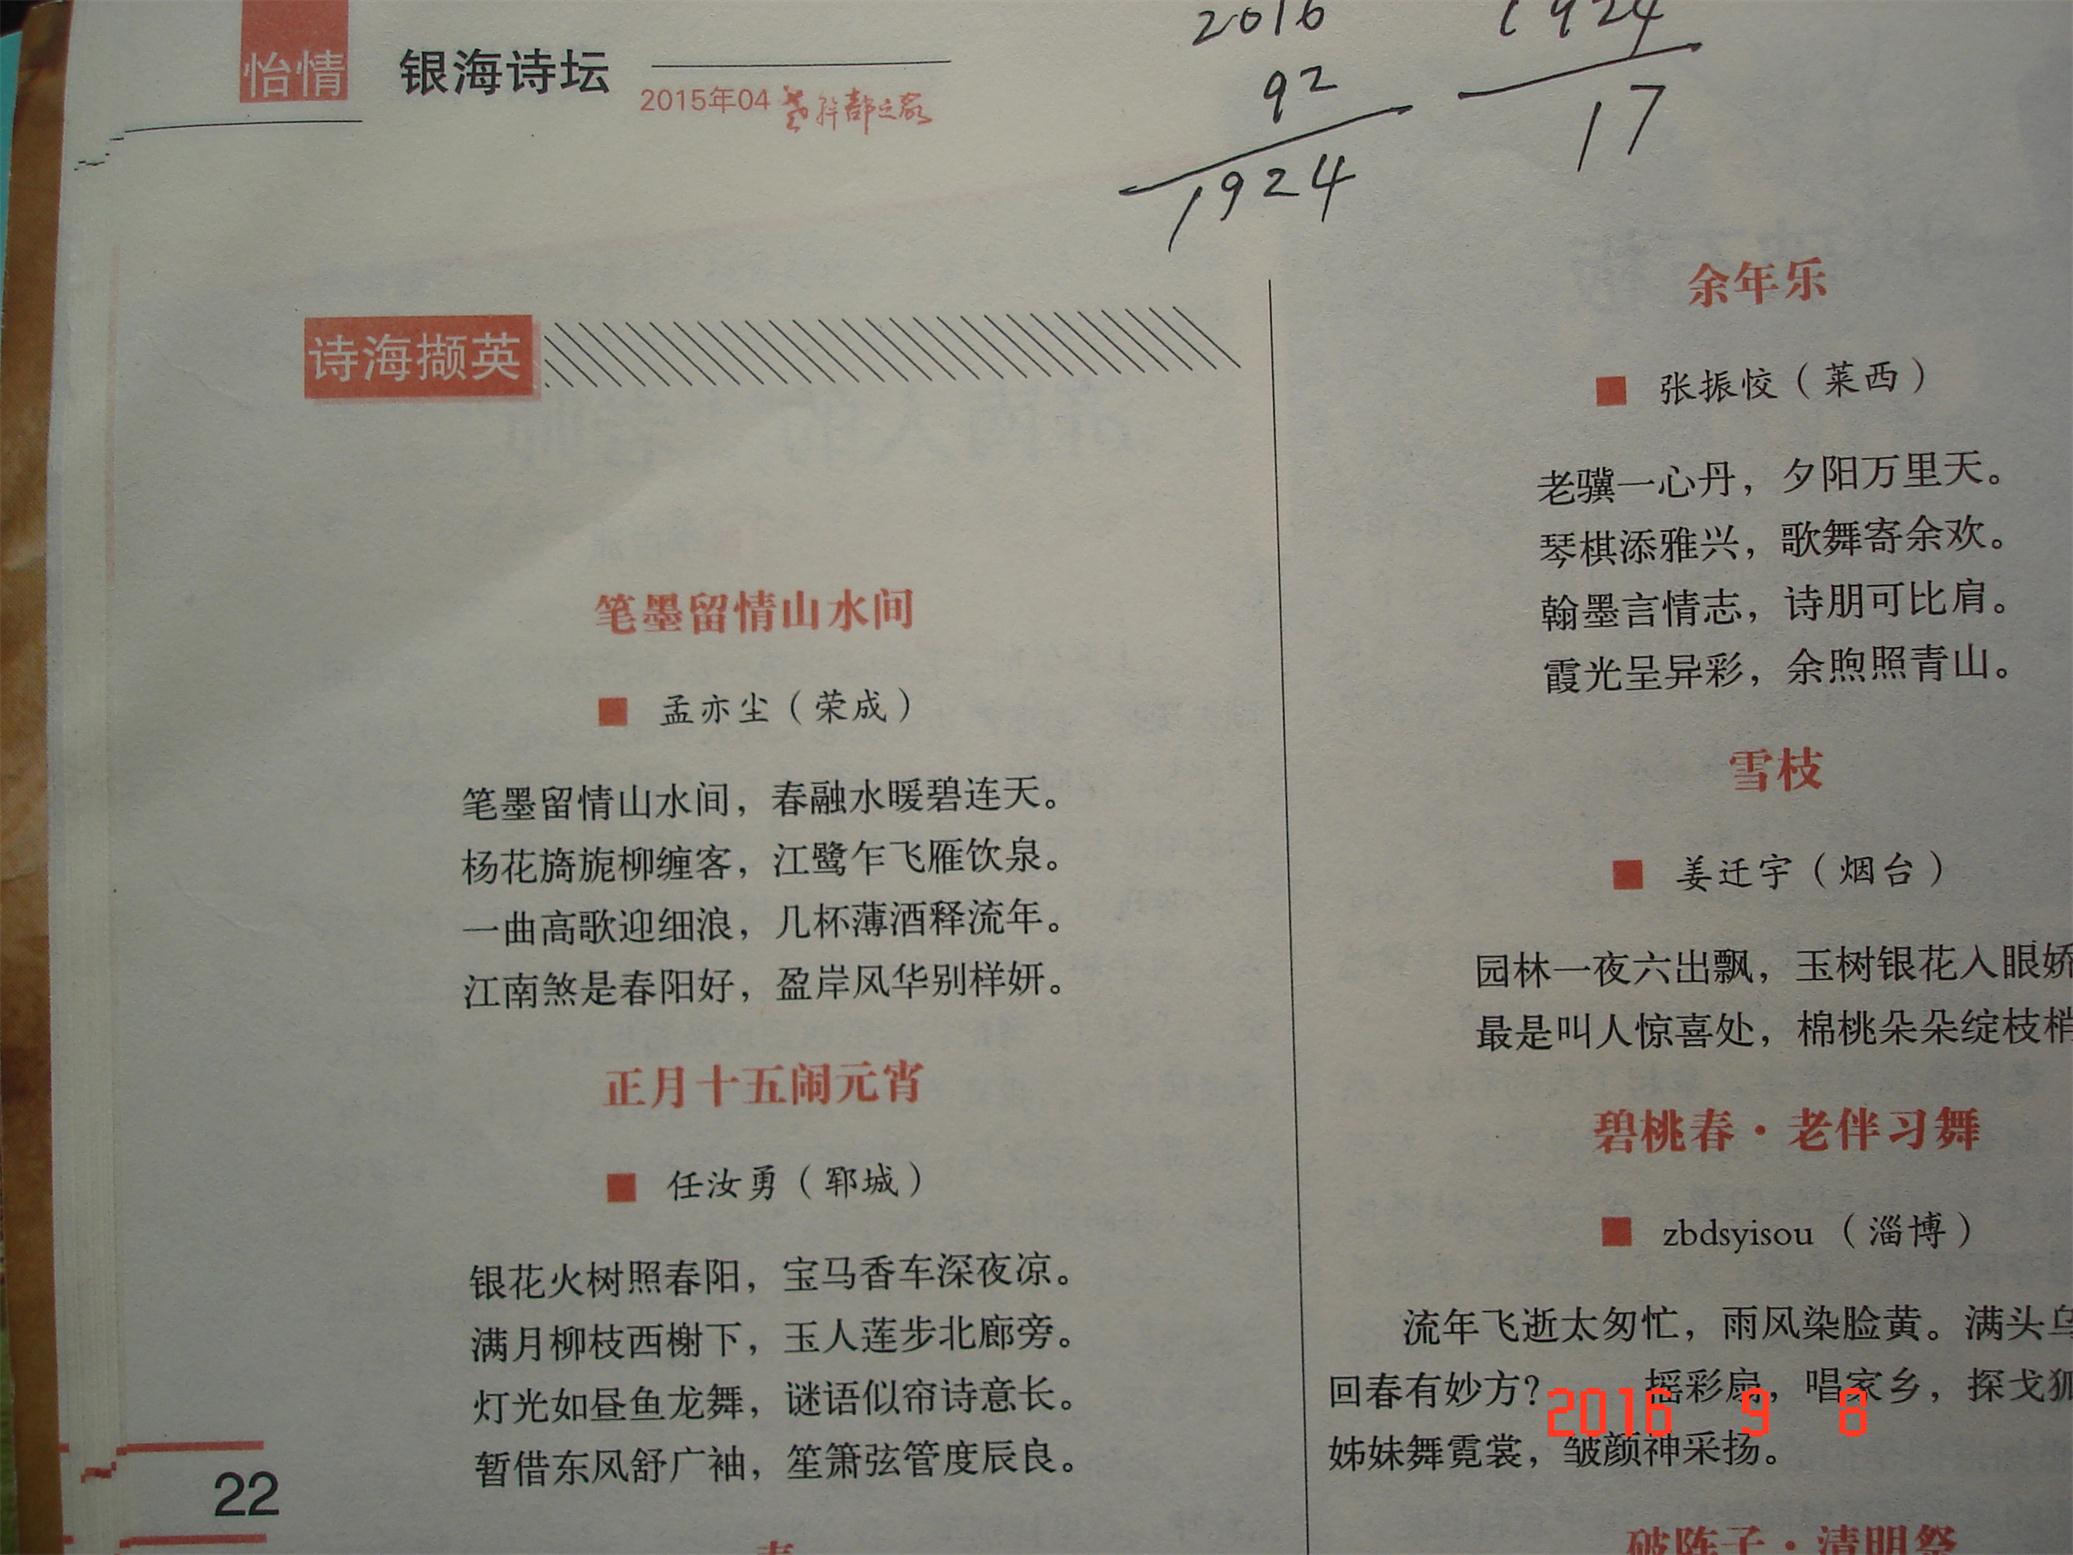 怡情
银海诗坛
2015年04 老干部之家
2016
92
1924
1924
17
诗海撷英
笔墨留情山水间
■ 孟亦尘（荣成）
笔墨留情山水间，春融水暖碧连天。
杨花旖旎柳缠客，江鹭乍飞雁饮泉。
一曲高歌迎细浪，几杯薄酒释流年。
江南煞是春阳好，盈岸风华别样妍。
正月十五闹元宵
■ 任汝勇（郓城）
银花火树照春阳，宝马香车深夜凉。
满月柳枝西榭下，玉人莲步北廊旁。
灯光如昼鱼龙舞，谜语似帘诗意长。
暂借东风舒广袖，笙箫弦管度辰良。
22
余年乐
■ 张振恔（莱西）
老骥一心丹，夕阳万里天。
琴棋添雅兴，歌舞寄余欢。
翰墨言情志，诗朋可比肩。
霞光呈异彩，余煦照青山。
雪枝
■ 姜迁宇（烟台）
园林一夜六出飘，玉树银花入眼娇
最是叫人惊喜处，棉桃朵朵绽枝梢
碧桃春·老伴习舞
■ zbdsyisou（淄博）
流年飞逝太匆忙，雨风染脸黄。满头乌
回春有妙方？ 摇彩扇，唱家乡，探戈狐
姊妹舞霓裳，皱颜神采扬。
破阵子·清明祭
2016 9 8